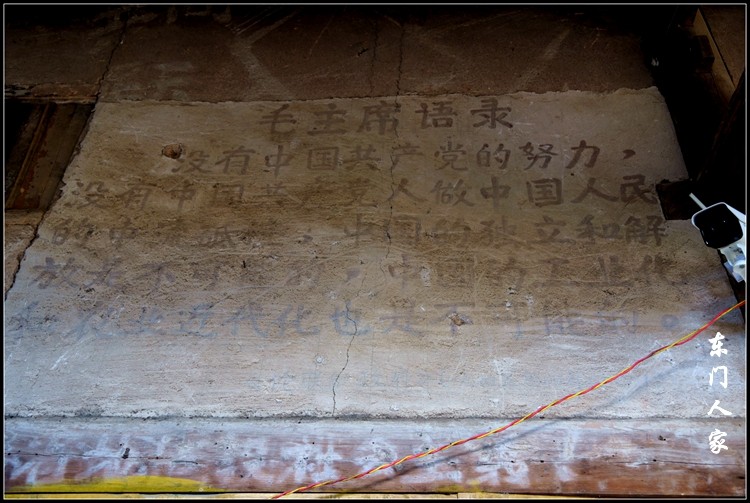 毛主席语录
没有中国共产党的努力，
没有中国共产党人做中国人民
的中流砥柱，中国的独立和解
放是不可能的，中国的工业化
和农业近代化也是不可能的。
东门人家